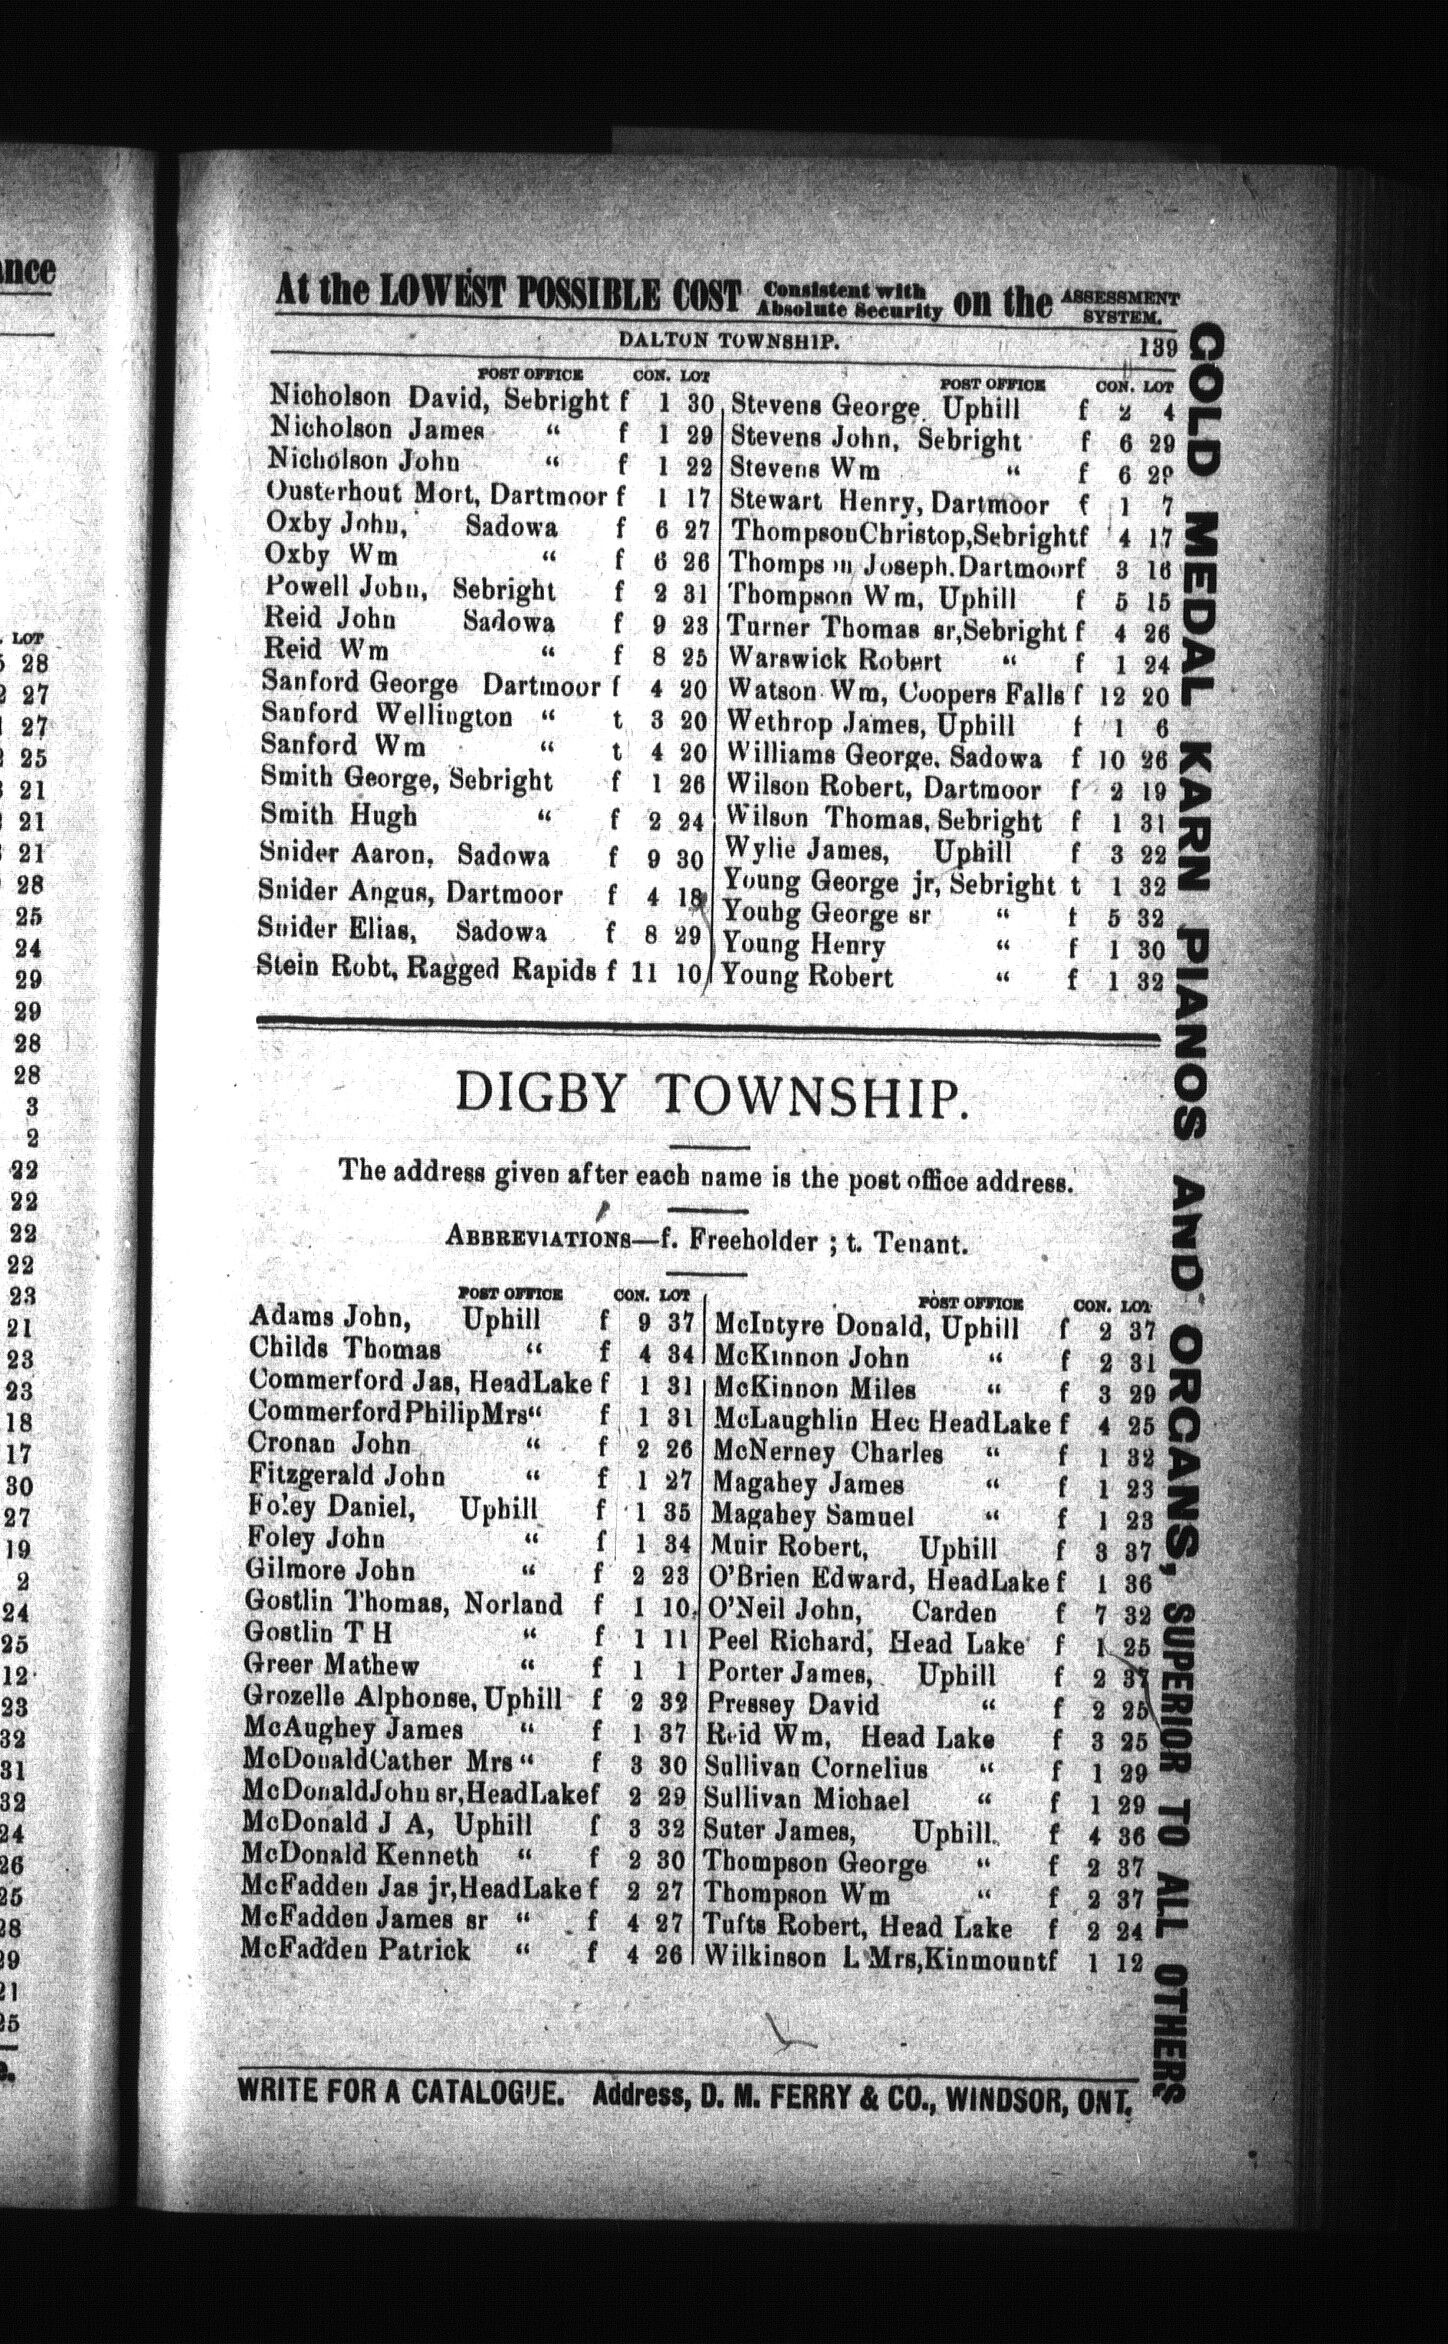 At the LOWEST POSSIBLE COST Consistent with Absolute Security on the ASSESSMENT SYSTEM.
DALTON TOWNSHIP. 139
POST OFFICE CON. LOT
Nicholson David, Sebright f 1 30
Nicholson James “ f 1 29
Nicholson John “ f 1 22
Ousterhout Mort, Dartmoor f 1 17
Oxby John, Sadowa f 6 27
Oxby Wm “ f 6 26
Powell John, Sebright f 2 31
Reid John Sadowa f 9 23
Reid Wm “ f 8 25
Sanford George Dartmoor f 4 20
Sanford Wellington “ t 3 20
Sanford Wm “ t 4 20
Smith George, Sebright f 1 26
Smith Hugh “ f 2 24
Snider Aaron, Sadowa f 9 30
Snider Angus, Dartmoor f 4 18
Snider Elias, Sadowa f 8 29
Stein Robt, Ragged Rapids f 11 10
POST OFFICE CON. LOT
Stevens George, Uphill f 2 4
Stevens John, Sebright f 6 29
Stevens Wm “ f 6 29
Stewart Henry, Dartmoor f 1 7
Thompson Christop, Sebright f 4 17
Thompson Joseph, Dartmoor f 3 16
Thompson Wm, Uphill f 5 15
Turner Thomas sr, Sebright f 4 26
Warswick Robert “ f 1 24
Watson Wm, Coopers Falls f 12 20
Wethrop James, Uphill f 1 6
Williams George, Sadowa f 10 26
Wilson Robert, Dartmoor f 2 19
Wilson Thomas, Sebright f 1 31
Wylie James, Uphill f 3 22
Young George jr, Sebright t 1 32
Youhg George sr “ f 5 32
Young Henry “ f 1 30
Young Robert “ f 1 32
DIGBY TOWNSHIP.
The address given after each name is the post office address.
ABBREVIATIONS—f. Freeholder ; t. Tenant.
POST OFFICE CON. LOT
Adams John, Uphill f 9 37
Childs Thomas “ f 4 34
Commerford Jas, Head Lake f 1 31
Commerford Philip Mrs “ f 1 31
Cronan John “ f 2 26
Fitzgerald John “ f 1 27
Foley Daniel, Uphill f 1 35
Foley John “ f 1 34
Gilmore John “ f 2 23
Gostlin Thomas, Norland f 1 10
Gostlin T H “ f 1 11
Greer Mathew “ f 1 1
Grozelle Alphonse, Uphill f 2 32
McAughey James “ f 1 37
McDonald Cather Mrs “ f 3 30
McDonald John sr, Head Lake f 2 29
McDonald J A, Uphill f 3 32
McDonald Kenneth “ f 2 30
McFadden Jas jr, Head Lake f 2 27
McFadden James sr “ f 4 27
McFadden Patrick “ f 4 26
POST OFFICE CON. LOT
McIntyre Donald, Uphill f 2 37
McKinnon John “ f 2 31
McKinnon Miles “ f 3 29
McLaughlin Hec Head Lake f 4 25
McNerney Charles “ f 1 32
Magahey James “ f 1 23
Magahey Samuel “ f 1 23
Muir Robert, Uphill f 3 37
O'Brien Edward, Head Lake f 1 36
O'Neil John, Carden f 7 32
Peel Richard, Head Lake f 1 25
Porter James, Uphill f 2 37
Pressey David “ f 2 25
Reid Wm, Head Lake f 3 25
Sullivan Cornelius “ f 1 29
Sullivan Michael “ f 1 29
Suter James, Uphill f 4 36
Thompson George “ f 2 37
Thompson Wm “ f 2 37
Tufts Robert, Head Lake f 2 24
Wilkinson L Mrs, Kinmount f 1 12
WRITE FOR A CATALOGUE. Address, D. M. FERRY & CO., WINDSOR, ONT.
GOLD MEDAL KARN PIANOS AND ORGANS, SUPERIOR TO ALL OTHERS